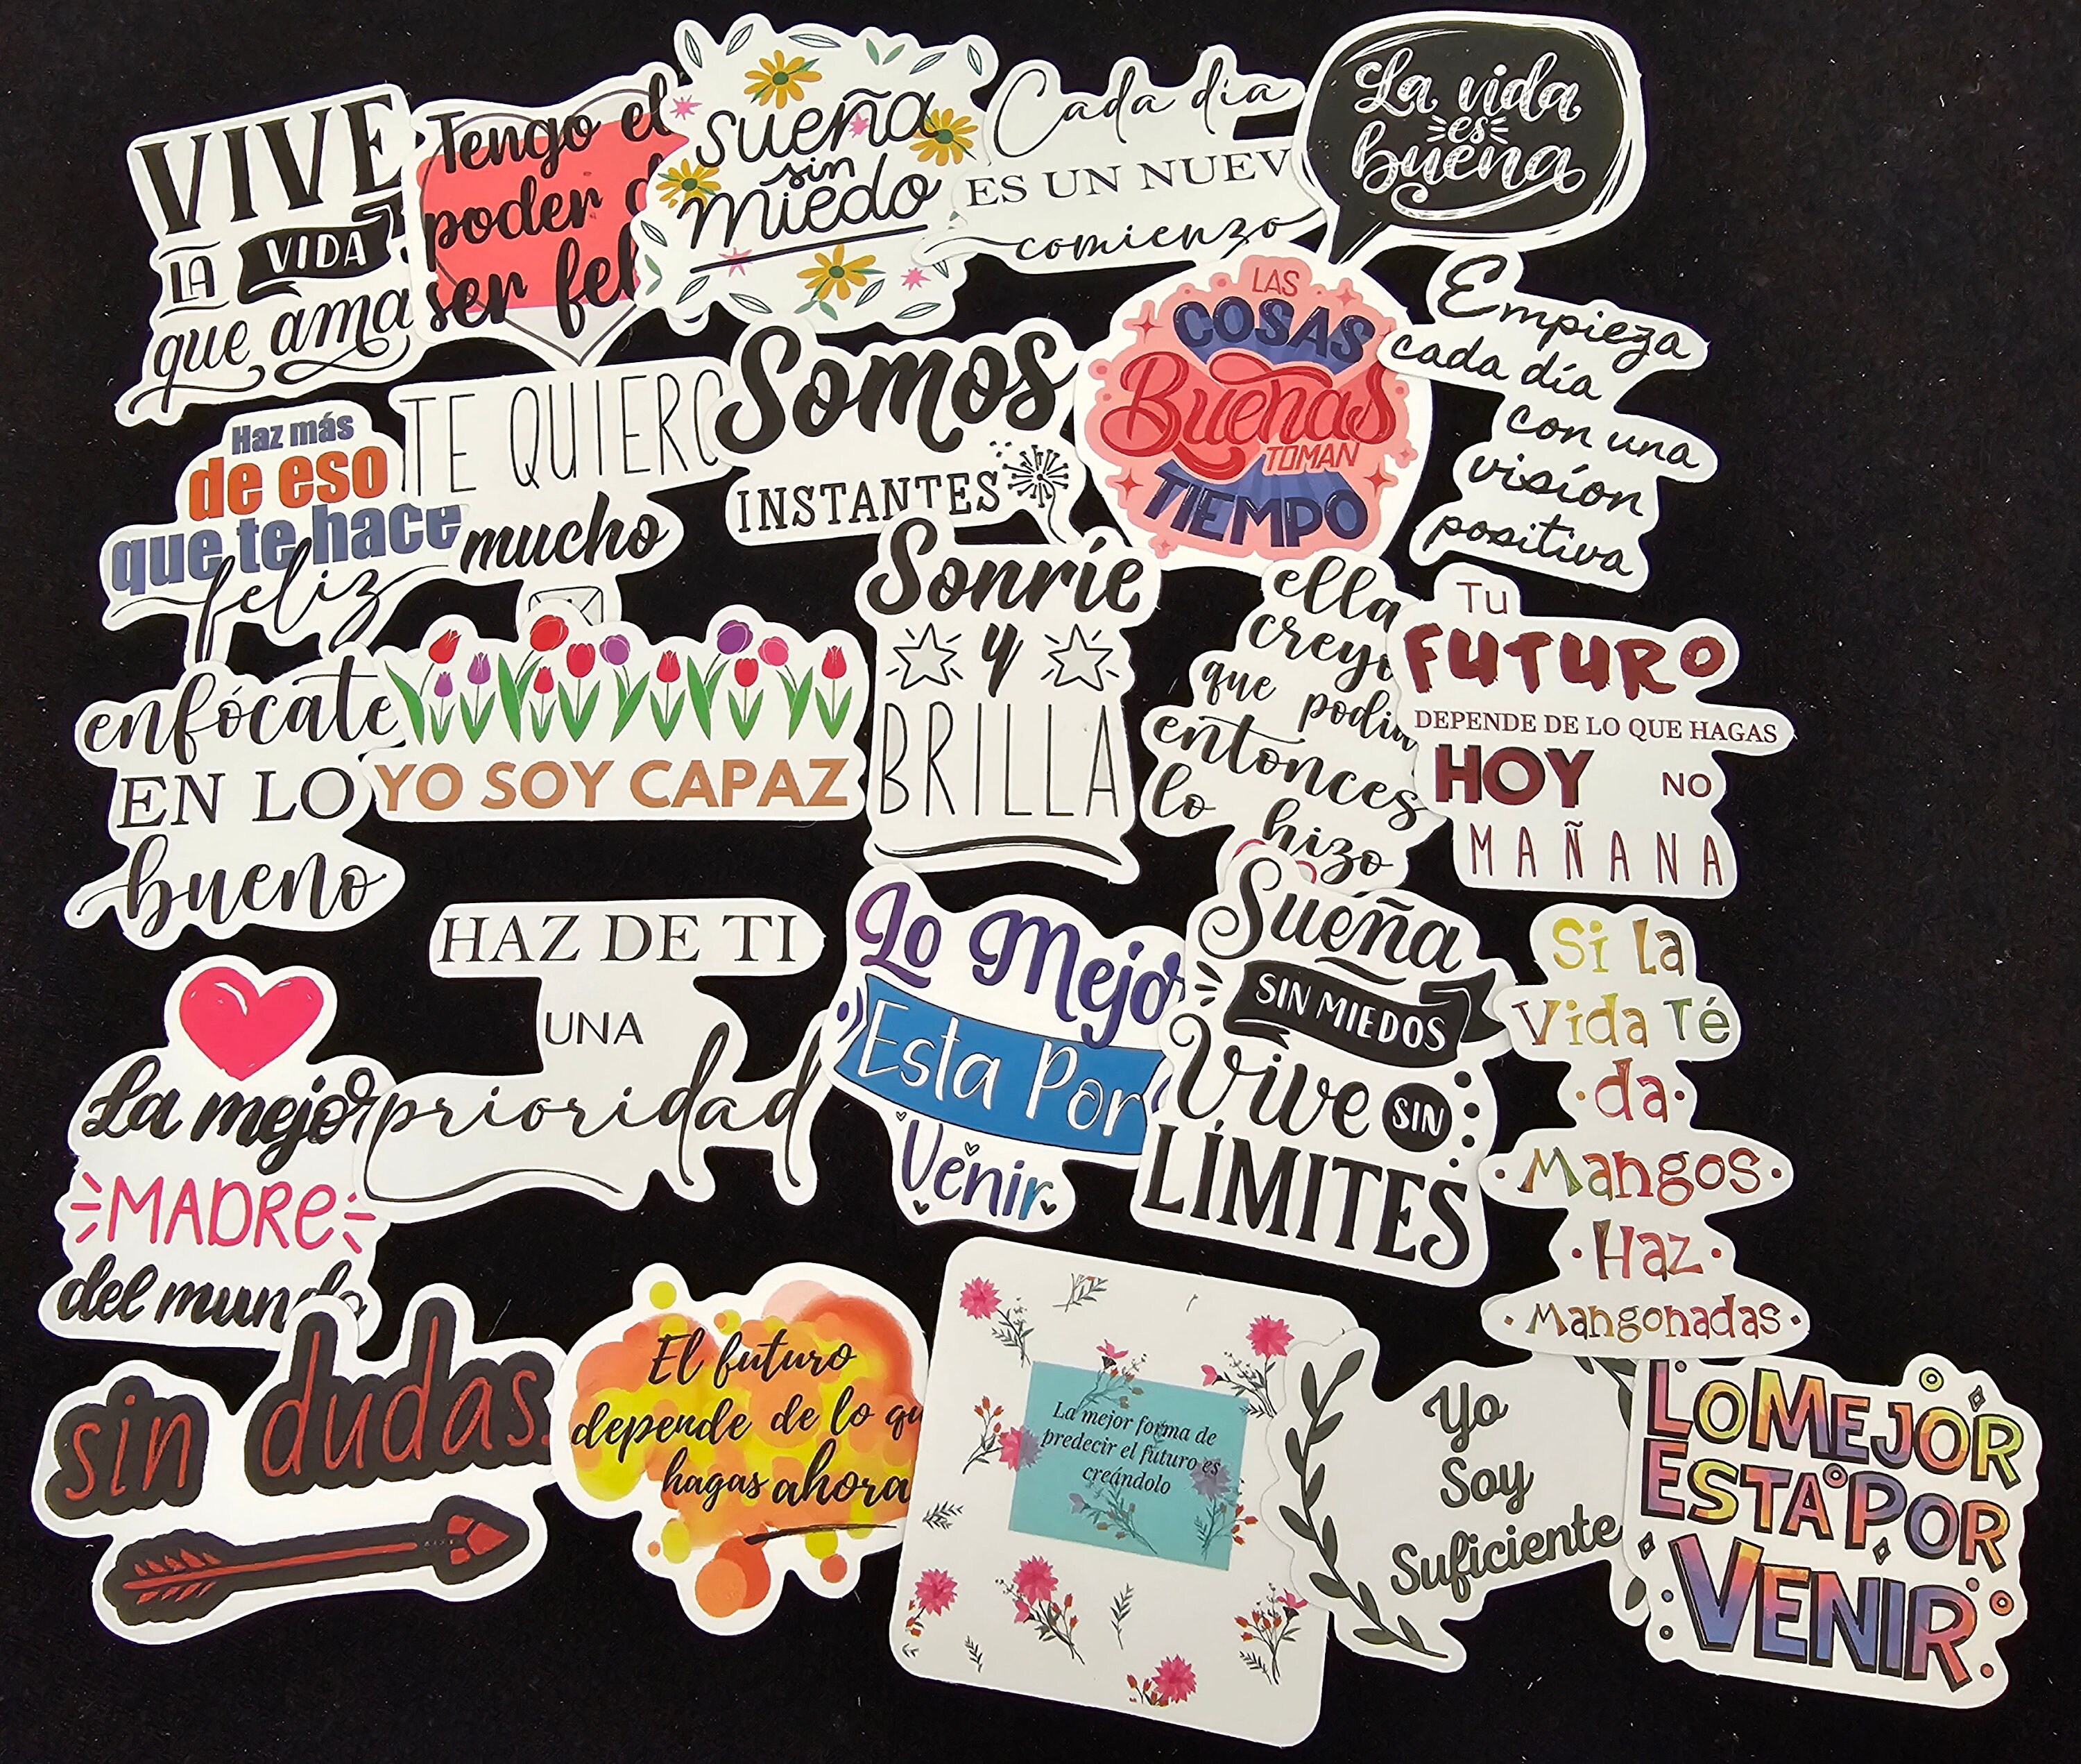 VIVE
LA VIDA
que ama
Tengo el
poder d
ser fel
sueña
sin
miedo
Cada día
ES UN NUEV
comienzo
La vida
es
buena
Haz más
de eso
que te hace
feliz
TE QUIERO
mucho
Somos
INSTANTES
LAS
COSAS
Buenas
TOMAN
TIEMPO
Empieza
cada día
con una
visión
positiva
enfócate
EN LO
bueno
YO SOY CAPAZ
Sonríe
y
BRILLA
ella
creyó
que podía
entonces
lo hizo
Tu
FUTURO
DEPENDE DE LO QUE HAGAS
HOY NO
MAÑANA
La mejor
MADRE
del mundo
HAZ DE TI
UNA
prioridad
Lo Mejor
Esta Por
Venir
Sueña
SIN MIEDOS
Vive SIN
LÍMITES
Si La
Vida Té
da
Mangos
Haz
Mangonadas
sin dudas.
El futuro
depende de lo qu
hagas ahora
La mejor forma de
predecir el futuro es
creándolo
Yo
Soy
Suficiente
LO MEJOR
ESTA POR
VENIR